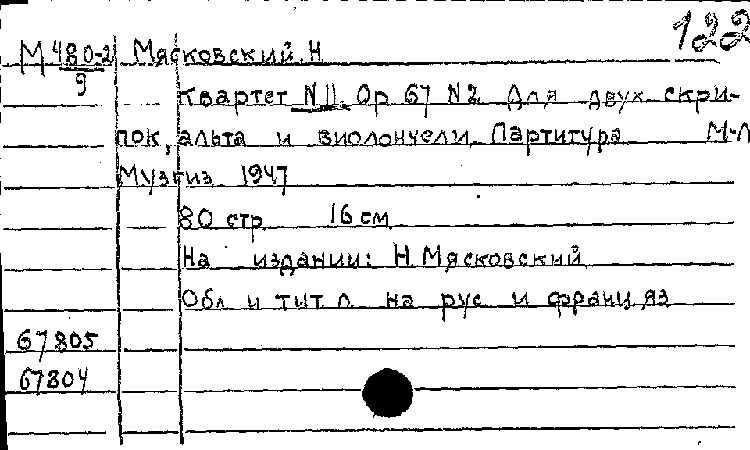 122
М 480-2 Мясковский. Н
9
Квартет N 11. Ор 67 N2 Для двух скри-
пок, альта и виолончели. Партитура М-Л
Музгиз 1947
80 стр 16 см
На издании: Н. Мясковский
Обл и тит л на рус и франц яз
67805
67804